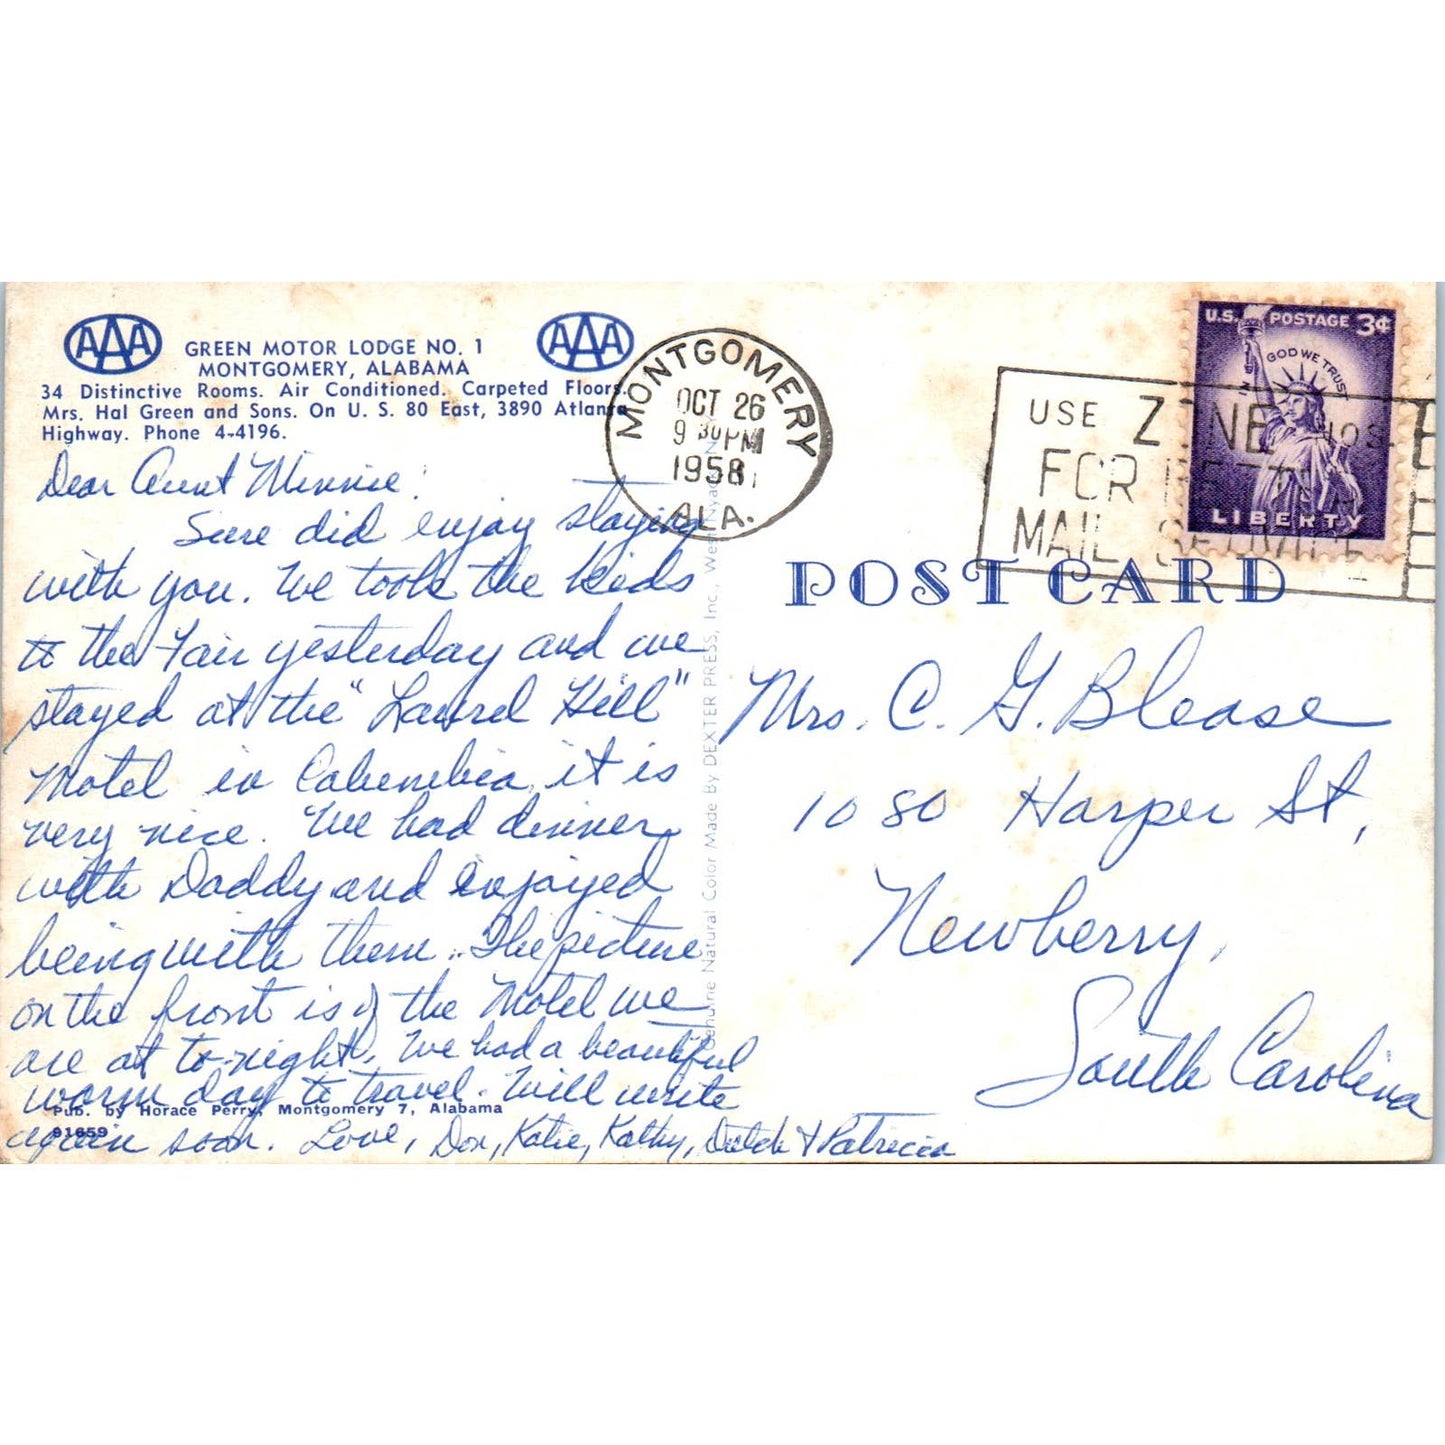 AAA
AAA
GREEN MOTOR LODGE NO. 1
MONTGOMERY, ALABAMA
34 Distinctive Rooms. Air Conditioned. Carpeted Floors.
Mrs. Hal Green and Sons. On U. S. 80 East, 3890 Atlanta
Highway. Phone 4-4196.
Dear Aunt Minnie:
Sure did enjoy staying
with you. We took the kids
to the Fair yesterday and we
stayed at the "Laurel Hill"
Motel in Columbia, it is
very nice. We had dinner
with Daddy and enjoyed
being with them. The picture
on the front is of the Motel we
are at to-night. We had a beautiful
warm day to travel. Will write
again soon. Love, Don, Katie, Kathy, Dutch & Patricia
Pub. by Horace Perry, Montgomery 7, Alabama
91659
Genuine Natural Color Made By DEXTER PRESS, Inc., West Nyack
MONTGOMERY
OCT 26
9 30 PM
1958
ALA.
USE ZONE NOS.
FOR BETTER
MAIL SERVICE
U.S. POSTAGE 3¢
IN GOD WE TRUST
LIBERTY
POST CARD
Mrs. C. G. Blease
1080 Harper St,
Newberry,
South Carolina